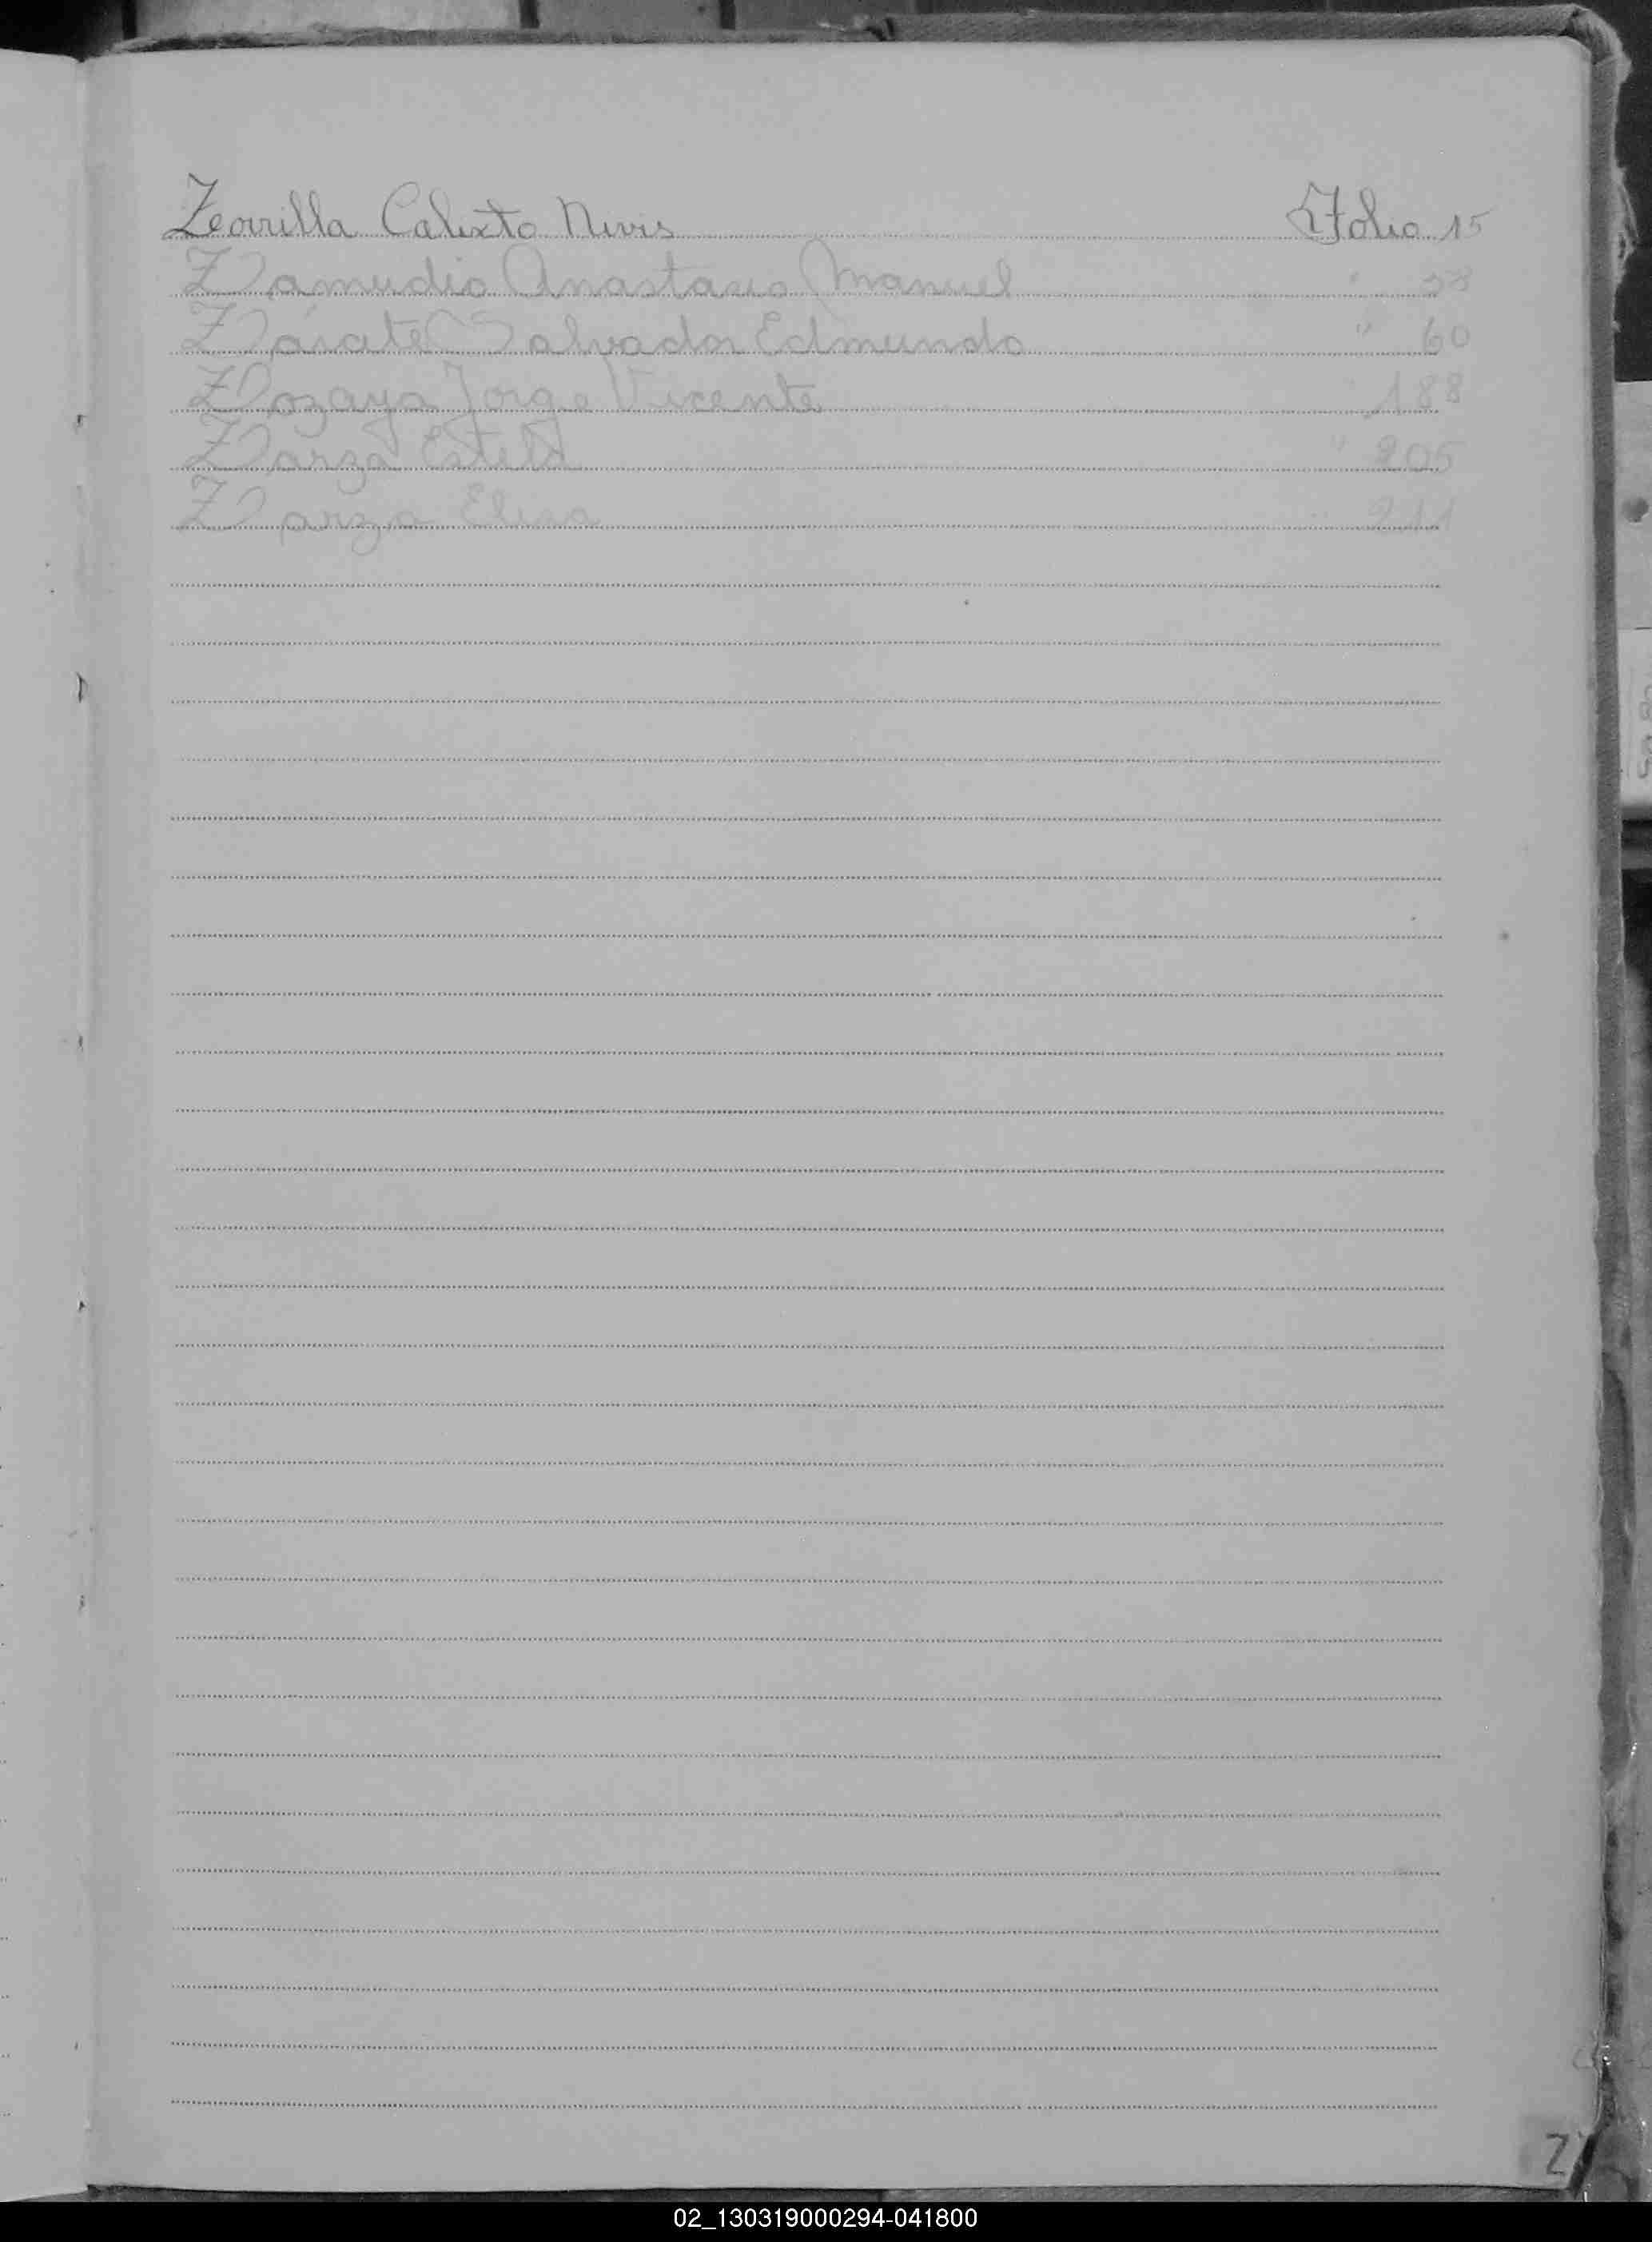 Zeorrilla Calixto Nivis Folio 15
Zamudio Anastacio Manuel "
Zárate Salvador Edmundo " 60
Zozaya Jorge Vicente " 188
Zarza Estela " 205
Zarza Elisa " 211
Z
02_130319000294-041800